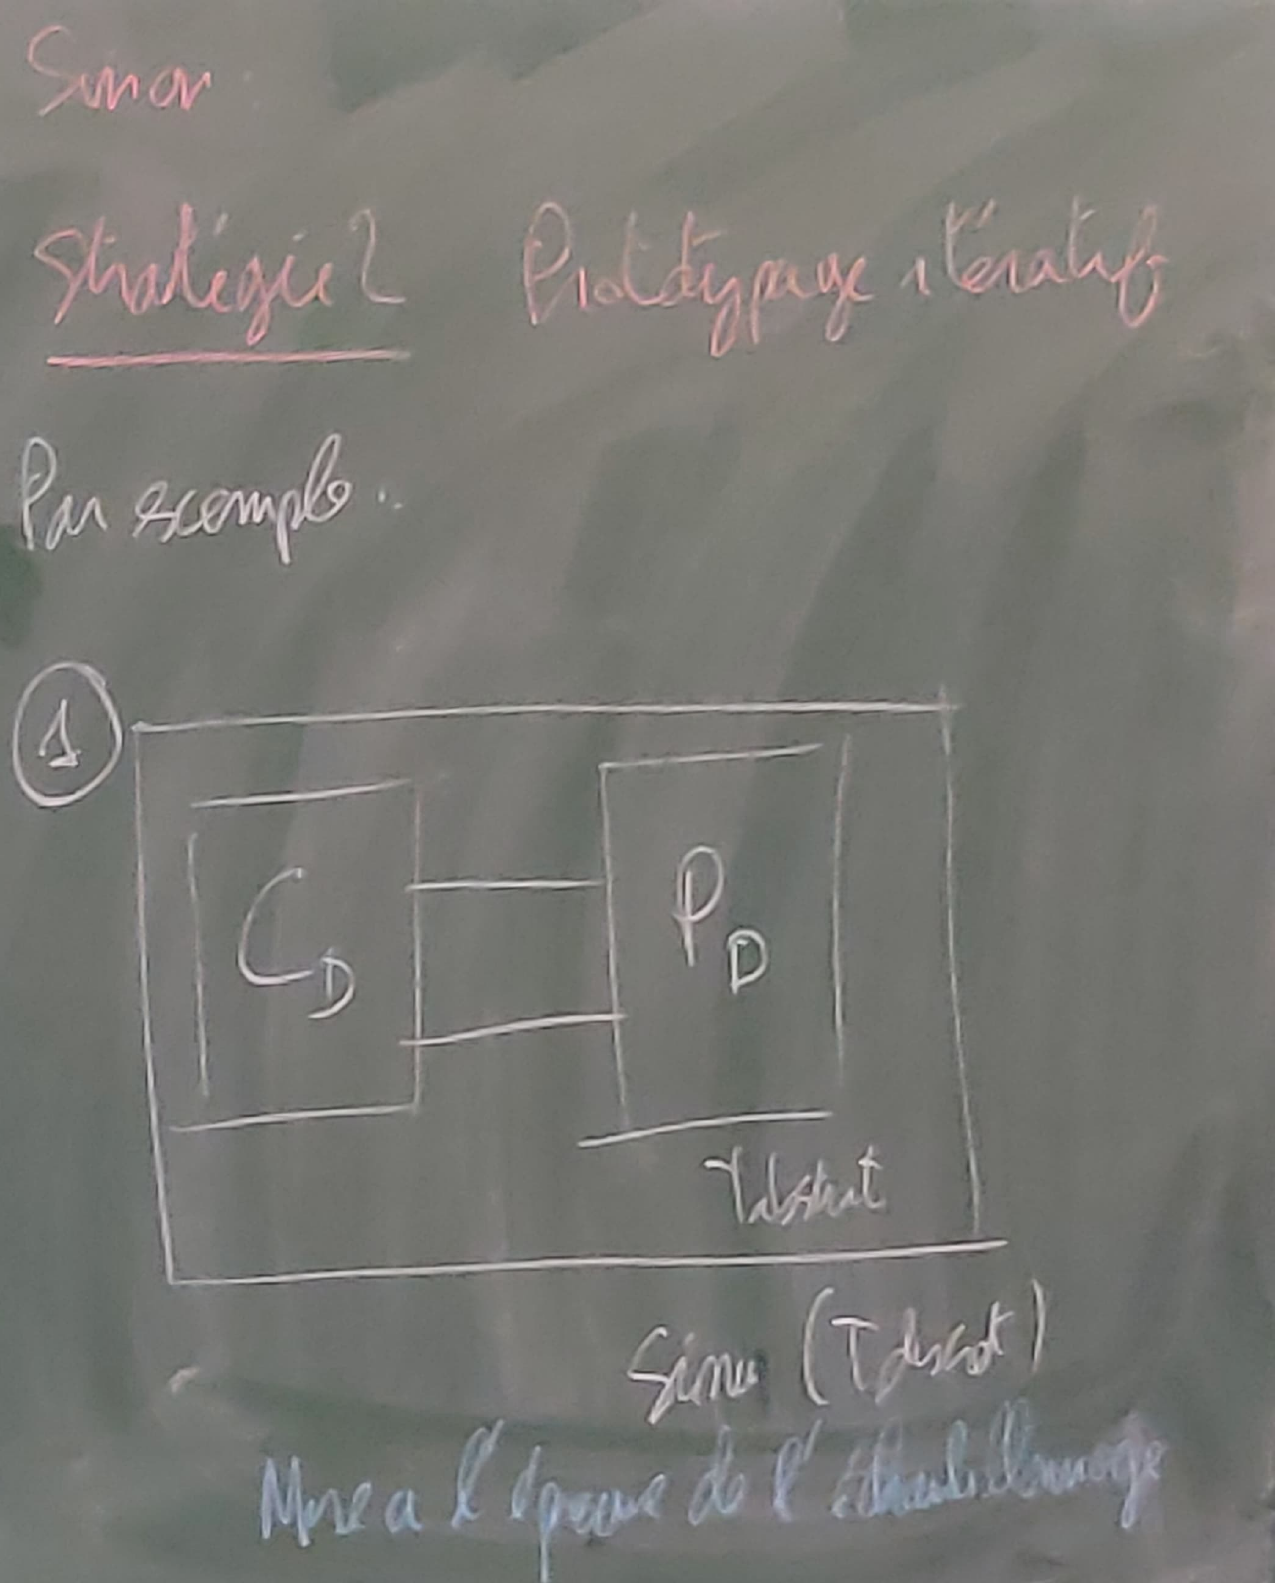 Sinon
Stratégie 2 Prototypage itératif
Par exemple :
1
C_D P_D
Simu (T discret)
Mise a l'épreuve de l'échantillonnage